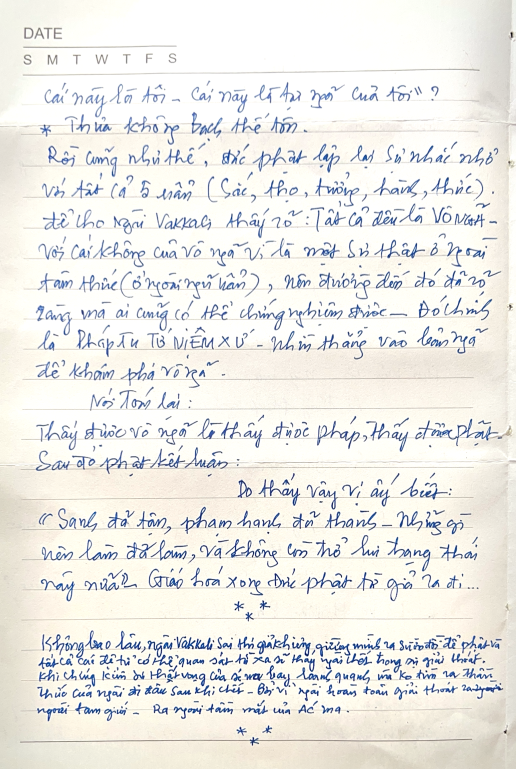 DATE
S M T W T F S
Cái này là tôi - Cái này là tự ngã của tôi"?
* Thưa không Bạch thế tôn.
Rồi cũng như thế, đức phật lập lại sự nhắc nhở
với tất cả 5 uẩn (Sắc, thọ, tưởng, hành, thức).
để cho Ngài Vakkali thấy rõ: Tất cả đều là VÔ NGÃ -
với cái không của vô ngã vì là một sự thật ở ngoài
tâm thức (ở ngoài ngũ uẩn), nên đường đến đó đã rõ
ràng mà ai cũng có thể chứng nghiệm được - Đó chính
là Pháp Tu TỨ NIỆM XỨ - nhìn thẳng vào bản ngã
để khám phá vô ngã.
Nói Tóm lại:
Thấy được vô ngã là thấy được pháp, thấy được phật.
Sau đó phật kết luận:
Do thấy vậy vị ấy biết:
"Sanh đã tận, phạm hạnh đã thành - Những gì
nên làm đã làm, và không còn trở lui trạng thái
này nữa" Giáo hoá xong Đức phật từ giả ra đi...
* * *
Không bao lâu, ngài Vakkali Sai thị giả khiêng giường mình ra sườn đồi để phật và
tất cả các đệ tử có thể quan sát từ xa sẽ thấy ngài chết trong sự giải thoát.
Khi chúng kiến sự thất vọng của sự bay loanh quanh mà ko tìm ra thần
thức của ngài đi đâu sau khi chết - Bởi vì ngài hoàn toàn giải thoát ra ngoài
ngoài tam giới - Ra ngoài tầm mắt của Ác ma.
* * *